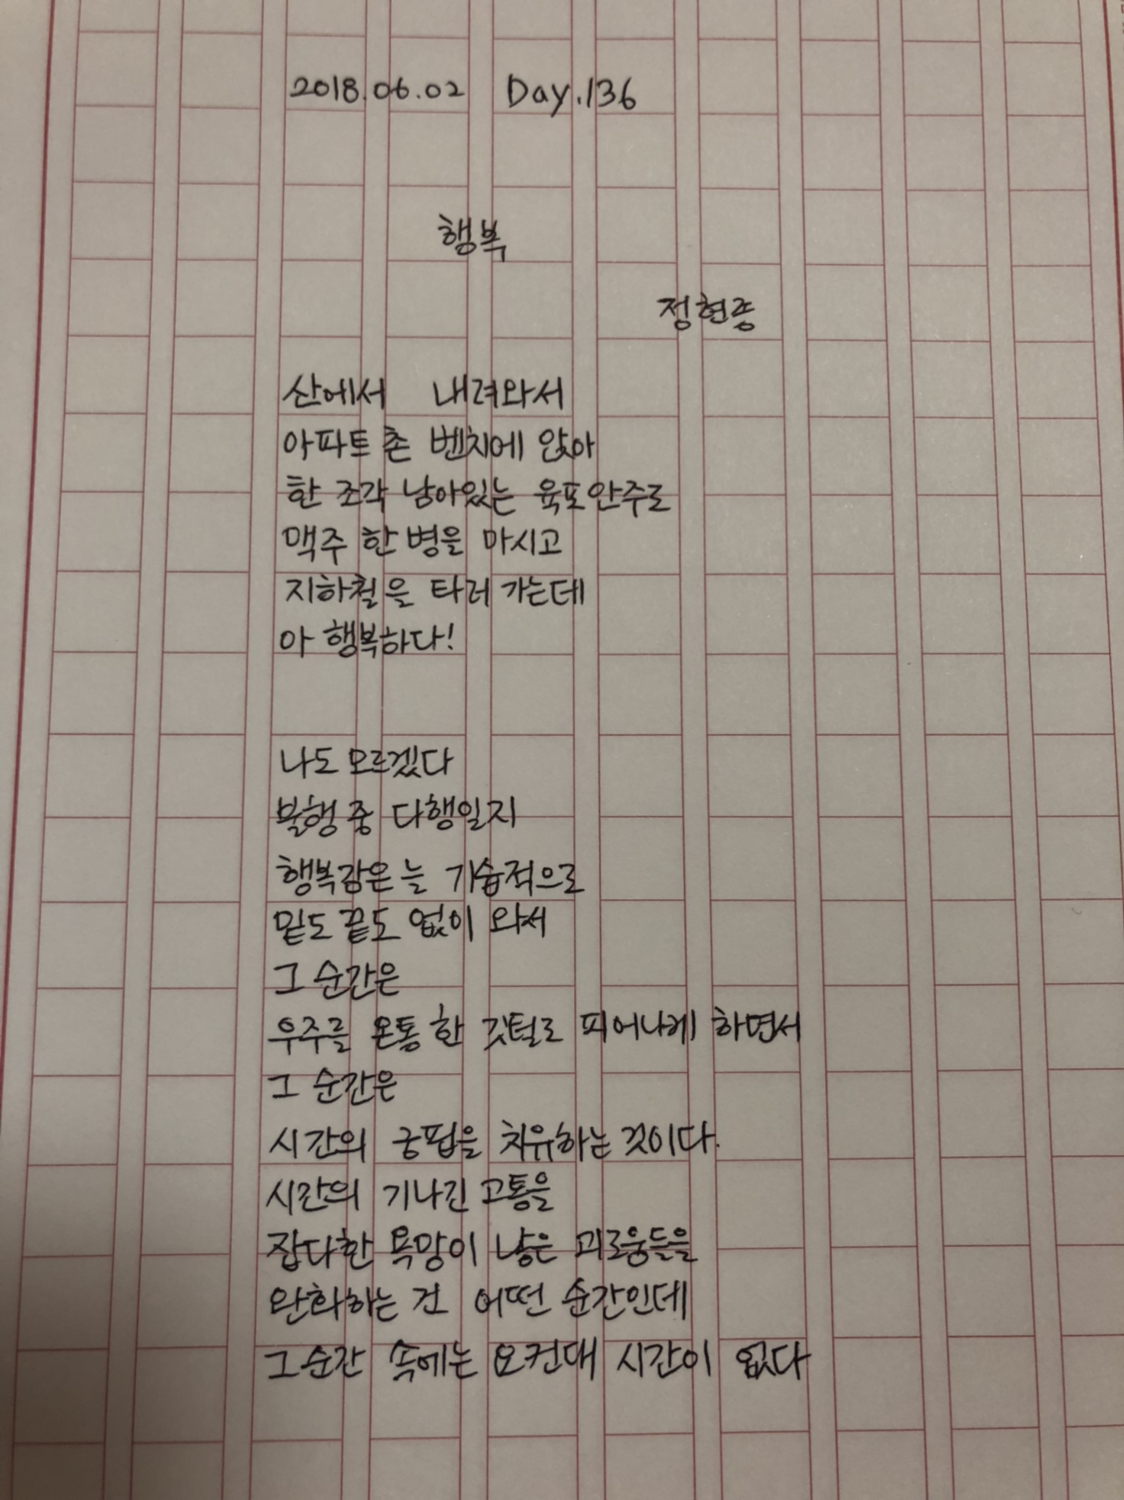 2018.06.02 Day.136
행복
정현종
산에서 내려와서
아파트촌 벤치에 앉아
한 조각 남아있는 육포안주로
맥주 한 병을 마시고
지하철을 타러 가는데
아 행복하다!
나도 모르겠다
불행 중 다행일지
행복감은 늘 기습적으로
밑도 끝도 없이 와서
그 순간은
우주를 온통 한 깃털로 피어나게 하면서
그 순간은
시간의 궁핍을 치유하는 것이다.
시간의 기나긴 고통을
잡다한 욕망이 낳은 괴로움들을
완화하는 건 어떤 순간인데
그 순간 속에는 요컨대 시간이 없다